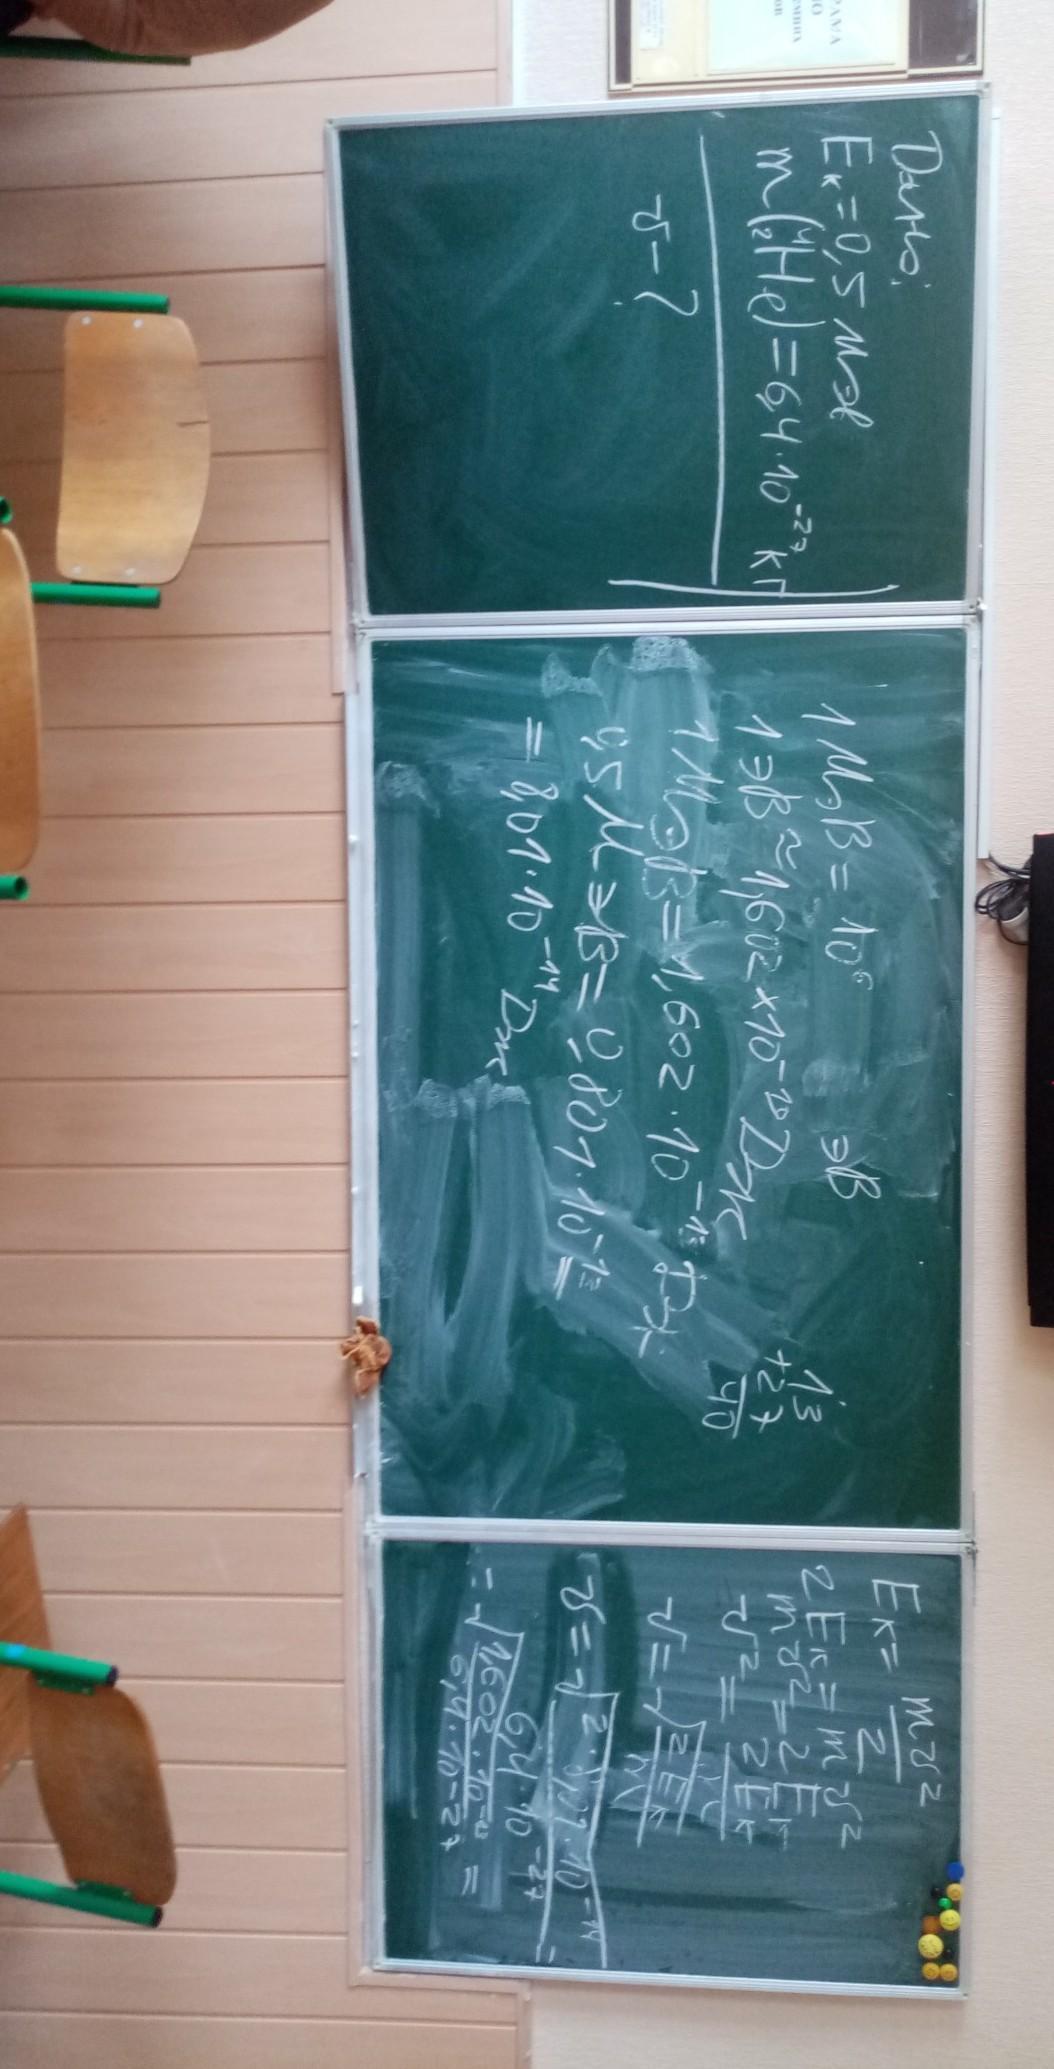 Дано:
Eк = 0,5 мэв
m(⁴₂He) = 6,4 · 10⁻²⁷ кг
υ - ?
1 МэВ = 10⁶ эВ
1 эВ ≈ 1,602 × 10⁻¹⁹ Дж
1 МэВ = 1,602 · 10⁻¹³ Дж
0,5 МэВ = 0,801 · 10⁻¹³ =
= 8,01 · 10⁻¹⁴ Дж
13
+27
40
Eк = mυ²/2
2Eк = mυ²
mυ² = 2Eк
υ² = 2Eк/m
υ = √(2Eк/m)
υ = √(2 · 8,01 · 10⁻¹⁴/6,4 · 10⁻²⁷) =
= √(1,602 · 10⁻¹³/6,4 · 10⁻²⁷) =